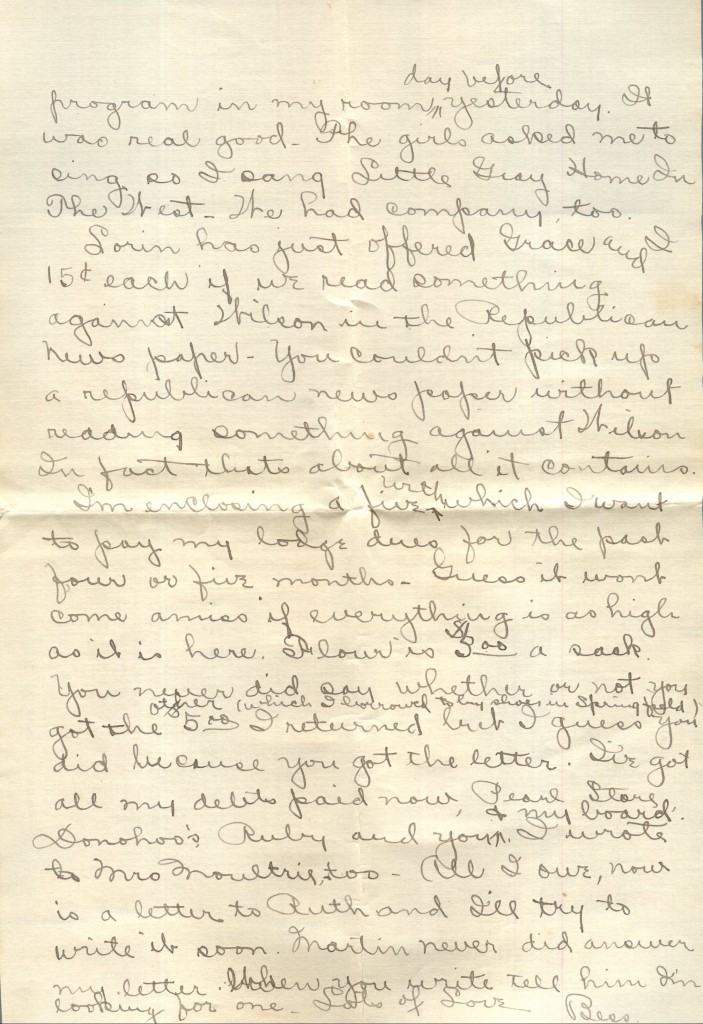 day before
program in my room ^ yesterday. It
was real good - The girls asked me to
sing so I sang Little Gray Home In
The West - We had company, too.
Lorin has just offered Grace and I
15¢ each if we read something
against Wilson in the Republican
news paper - You couldn't pick up
a republican news paper without
reading something against Wilson
In fact thats about all it contains.
with
I'm enclosing a five ^ which I want
to pay my lodge dues for the past
four or five months - Guess it wont
come amiss if everything is as high
as it is here. Flour is $3.00 a sack.
You never did say whether or not you
other (which I borrowed to buy shoes in Springfield)
got the 5.00 I returned but I guess you
did because you got the letter. I've got
all my debts paid now, Pearl Store,
& my board.
Donohoo's, Ruby and you ^. I wrote
to Mrs Moultrie, too - All I owe, now
is a letter to Ruth and I'll try to
write it soon. Martin never did answer
my letter. When you write tell him I'm
looking for one - Lots of Love
Bess.